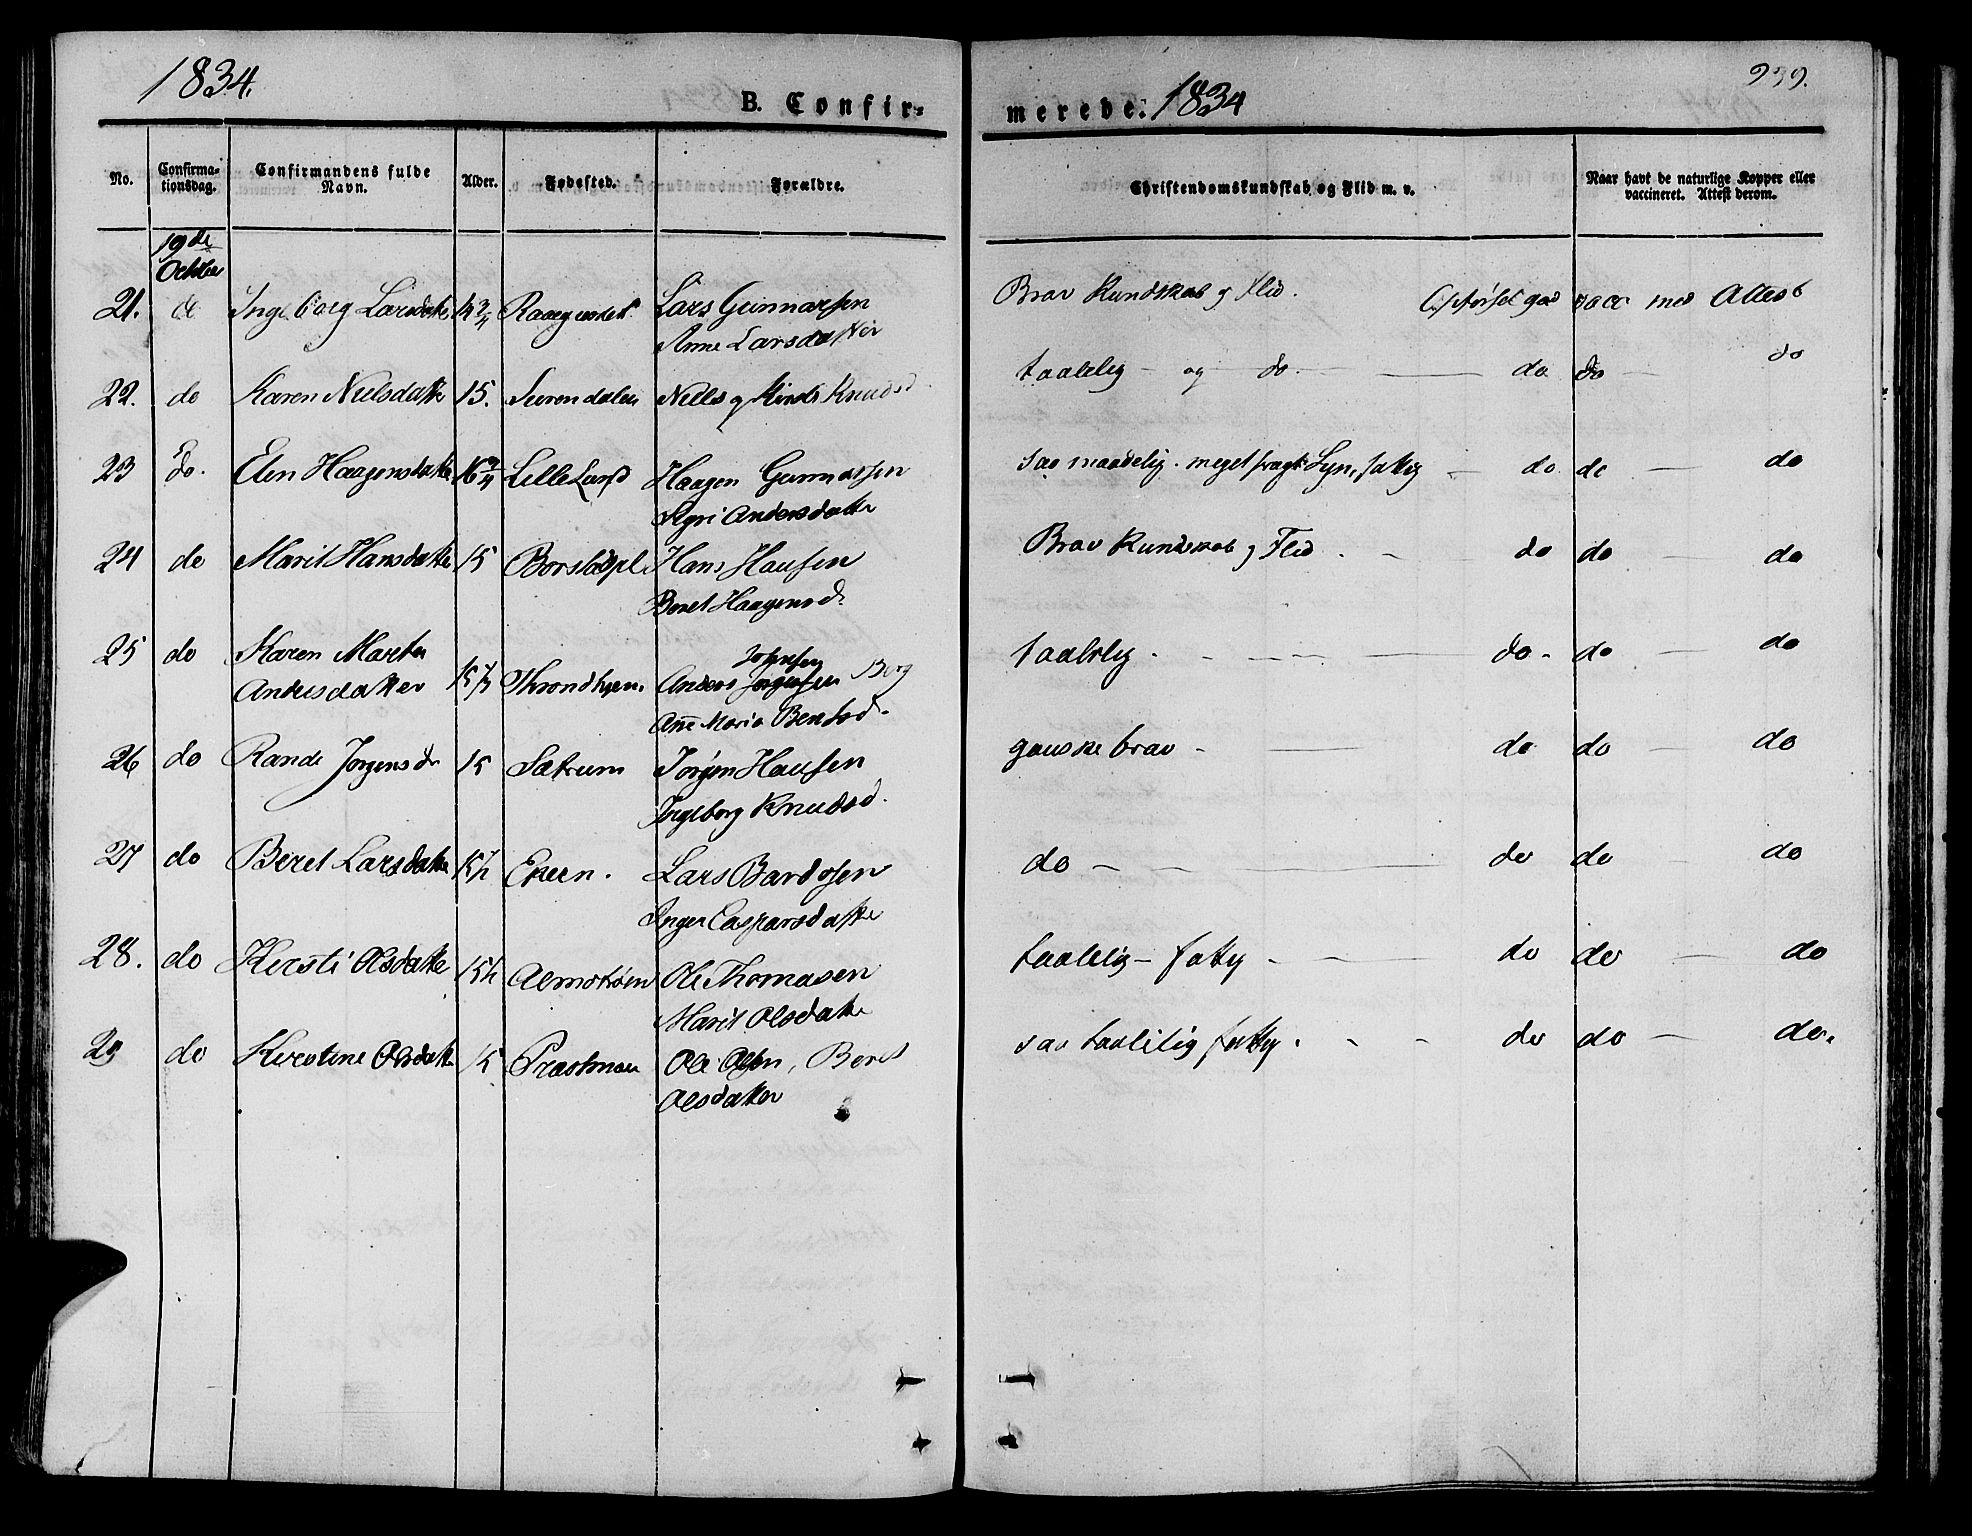 1834.
B. Confir-
merede. 1834
239.
No.
Confirma-
tionsdag.
Confirmandens fulde
Navn.
Alder.
Fødested.
Forældre.
Christendomskundskab og Flid m. v.
Naar havt de naturlige Kopper eller
vaccineret. Attest derom.
19de
October
21. do Ingeborg Larsdatter 15 3/4 Lars Gunnarsen Brav Kundskab og Flid. Opførsel god vacc med Attest
Anne Larsdatter
22. do Karen Nielsdatter 15. Surendalen Niels og Knudsd taalelig - og do. do do do
23 do. Elen Haagensdatter 16 3/4 Lille Lund Haagen Gunnarsen saa maadelig. meget svagt Syn, fattig do do do
Sigri Andersdatter
24 do Marit Hansdatter 15 Borstadpl. Hans Hansen Brav Kundskab og Flid do do do
Beret Haagensd.
25 do Karen Marta taalelig do do do
Johnsen
Andersdatter 15 1/2 Throndhjem. Anders Jørgensen Berg
Anne Maria Bentsd.
26 do Rande Jørgensdr 15 Sætrum Jørgen Hansen ganske brav do do do
Ingeborg Knudsd.
27 do Beret Larsdatter 15 1/2 Ekeen. Lars Bardosen do do do do
Inger Casparsdatter
28. do Kersti Olsdatter 15 1/2 Almstrøen Ole Thomasen taalelig - fattig do do do
Marit Olsdatter
29 do Kerstine Olsdatter 15 Præstmoen Ole Olsen, Beret saa taalelig fattig. do do do.
Olsdatter